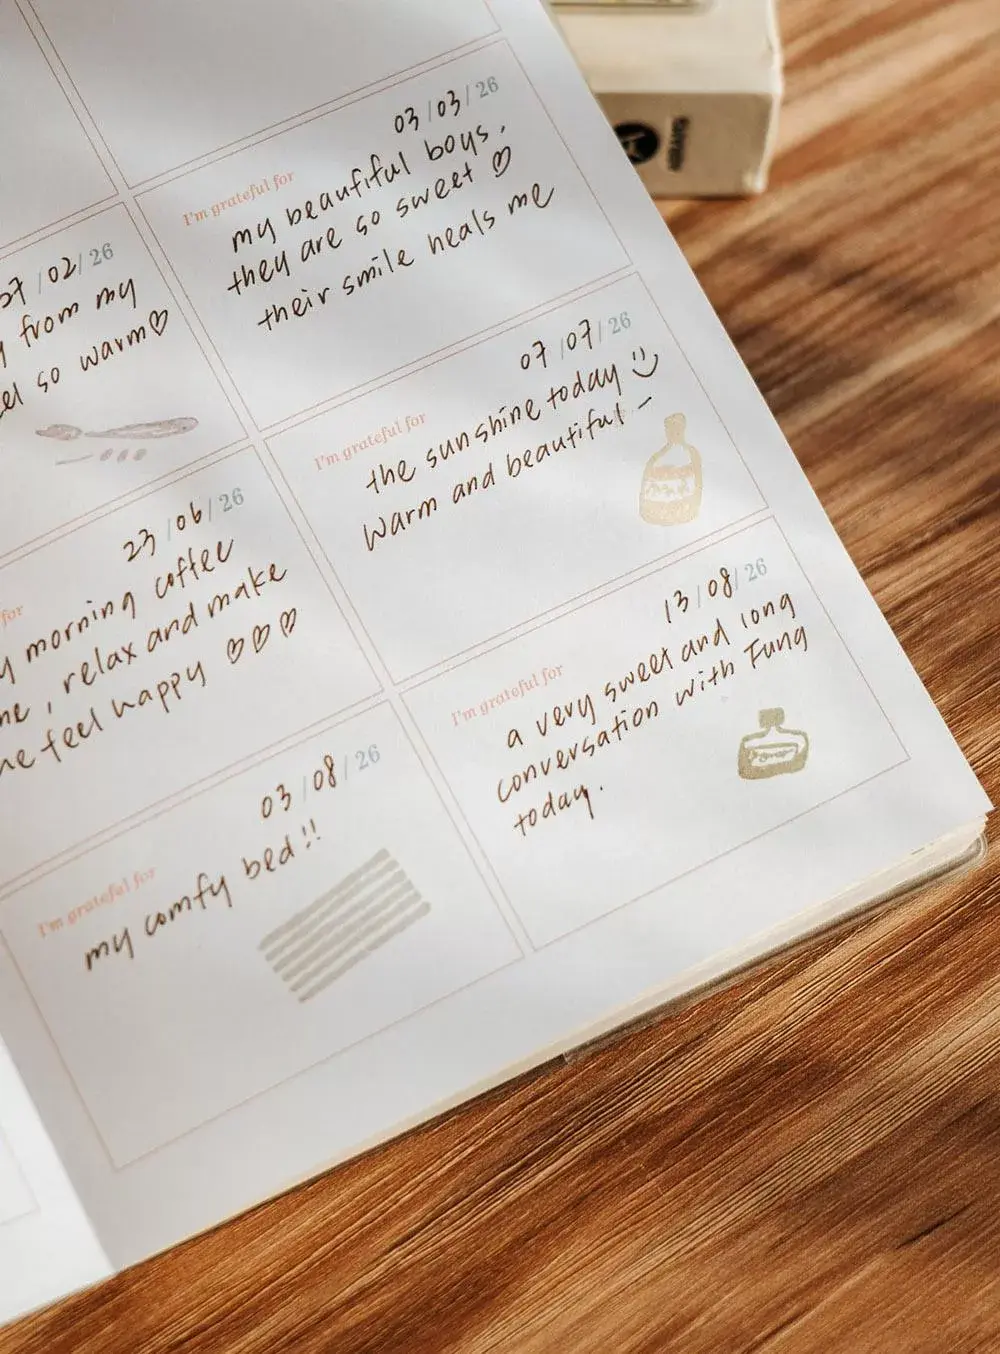 03/03/26
I'm grateful for
my beautiful boys,
they are so sweet ♡
their smile heals me
27/02/26
from my
so warm♡
07/07/26
I'm grateful for
the sunshine today
warm and beautiful –
23/06/26
for
morning coffee
, relax and make
feel happy ♡♡♡
13/08/26
I'm grateful for
a very sweet and long
conversation with Fung
today.
03/08/26
I'm grateful for
my comfy bed!!